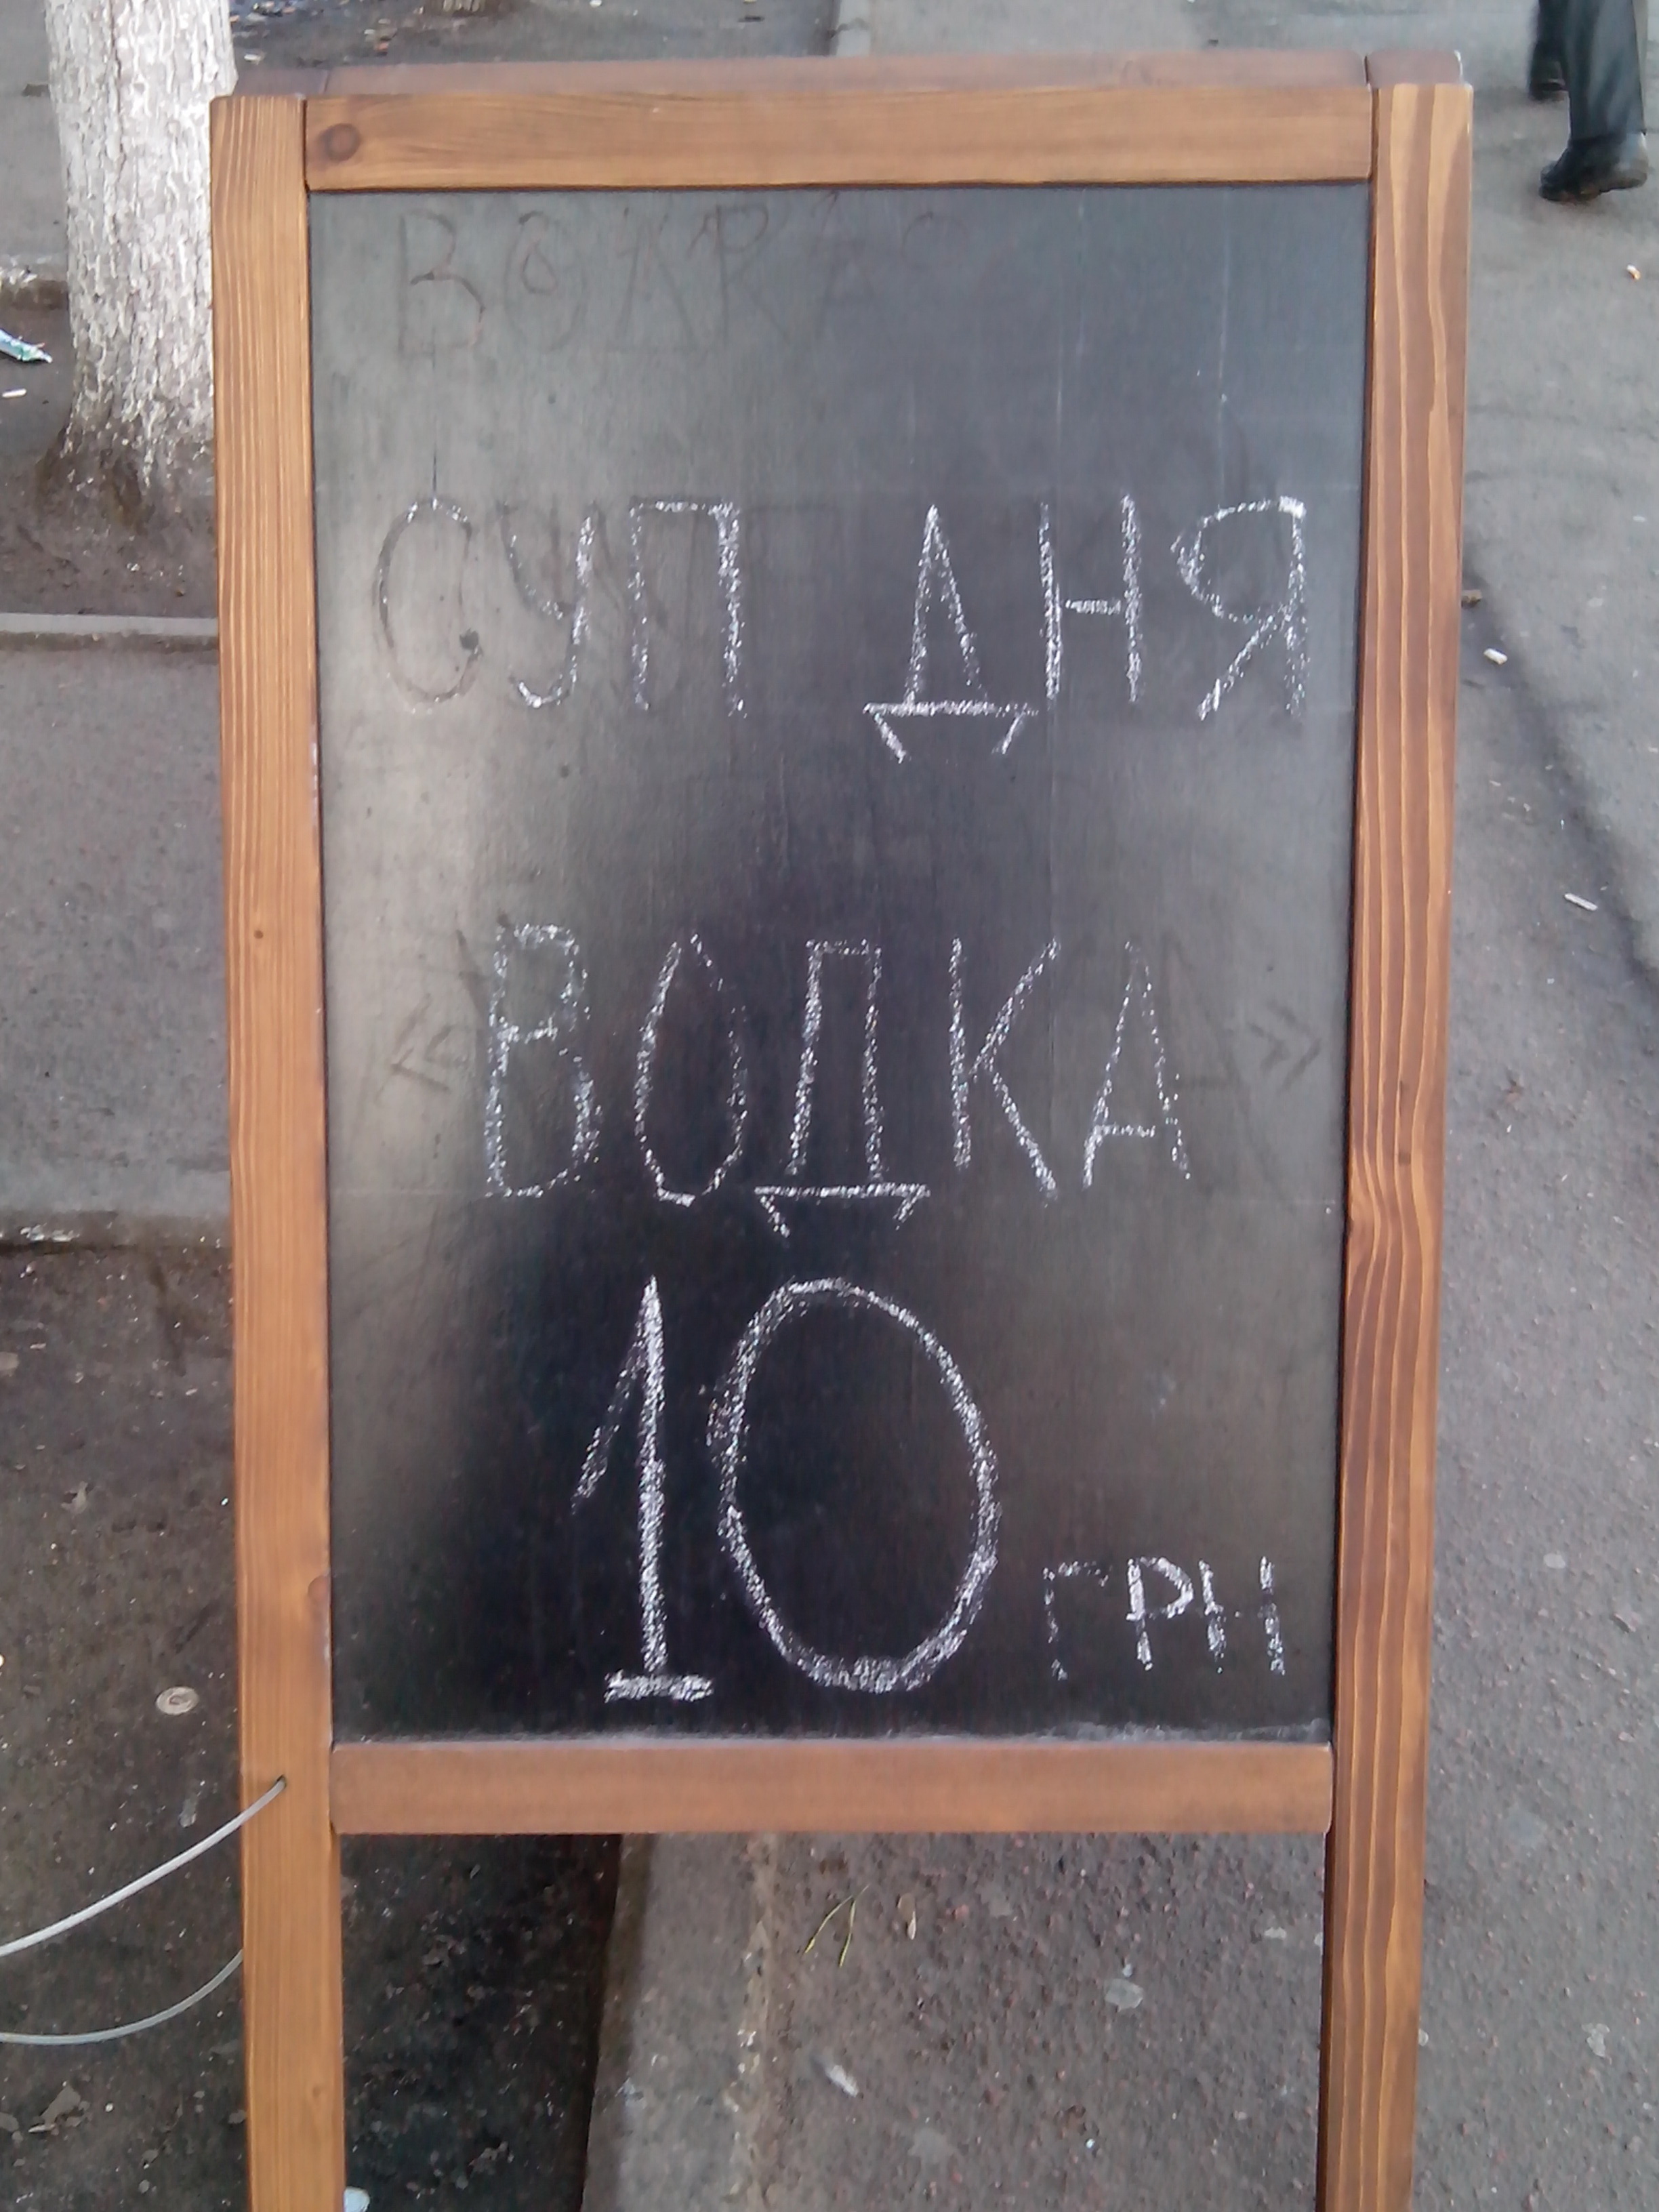 СУП ДНЯ
ВОДКА
10 ГРН